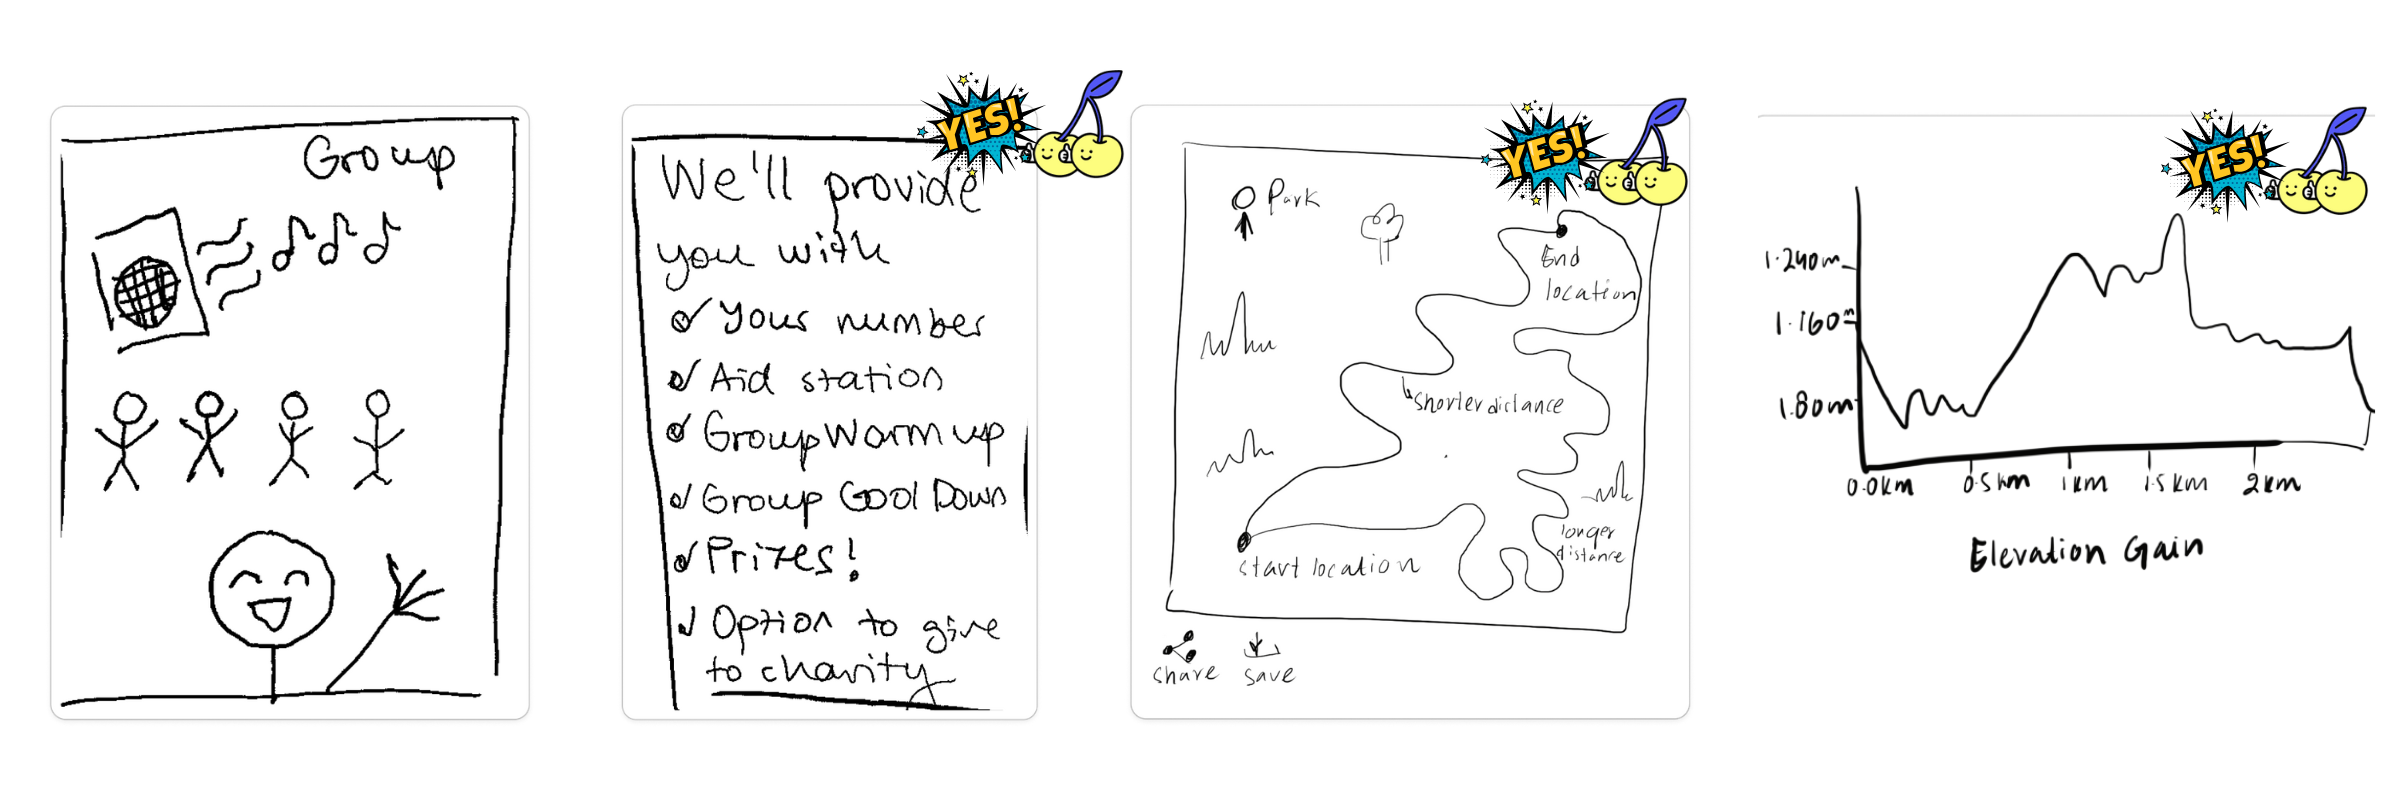 Group
YES!
We'll provide
you with
Your number
Aid station
Group Warm up
Group Cool Down
Prizes!
Option to give
to charity
YES!
Park
End
location
Shorter distance
longer
distance
start location
share save
YES!
1.240m
1.160m
1.80m
0.0km 0.5km 1km 1.5km 2km
Elevation Gain